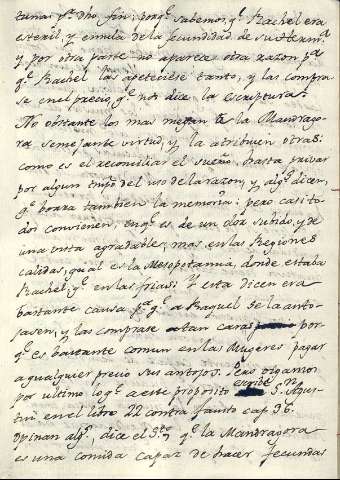 tunas pa. dho. fin; porqe. sabemos, qe. Rachel era
esteril, y emula de la fecundidad de su Herma.
y por otra parte no aparece otra razon pa.
qe. Rachel las apeteciese tanto, y las compra-
se en el precio, qe. nos dice la escriptura.
No obstante los mas niegan a la Mandrago-
ra semejante virtud, y la atribuien otras:
como es el reconciliar el sueño, hasta privar
por algun tmpo. del uso de la razon, y algs. dicen,
qe. borra tambien la memoria; pero casi to-
dos convienen, en qe. es de un olor subido, y de
una vista agradable; mas en las Regiones
calidas, qual es la Mesopotamia, donde estaba
Rachel, qe. en las frias. Y esta dicen era
bastante causa pa. qe. a Raquel se la anto-
jasen, y las comprase a tan caras por-
qe. es bastante comun en las Mugeres pagar
a qualquier precio sus antojos. Pero oigamos
por ultimo lo qe. a este proposito escribe Sn. Agus-
tin en el libro 22 contra fausto cap. 56.
Opinan algs., dice el Sto., qe. la Mandragora
es una comida capaz de hacer fecundas